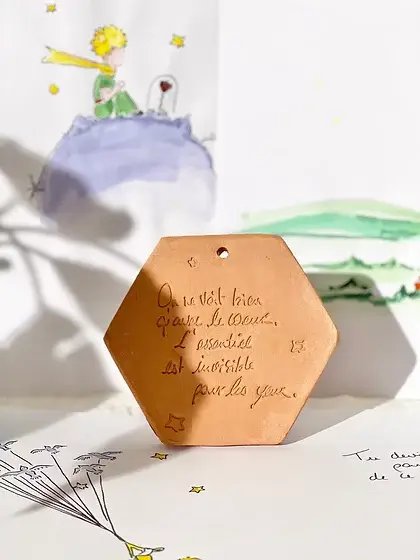 On ne voit bien
qu'avec le coeur.
L'essentiel
est invisible
pour les yeux.
Tu devi
pou
de ce